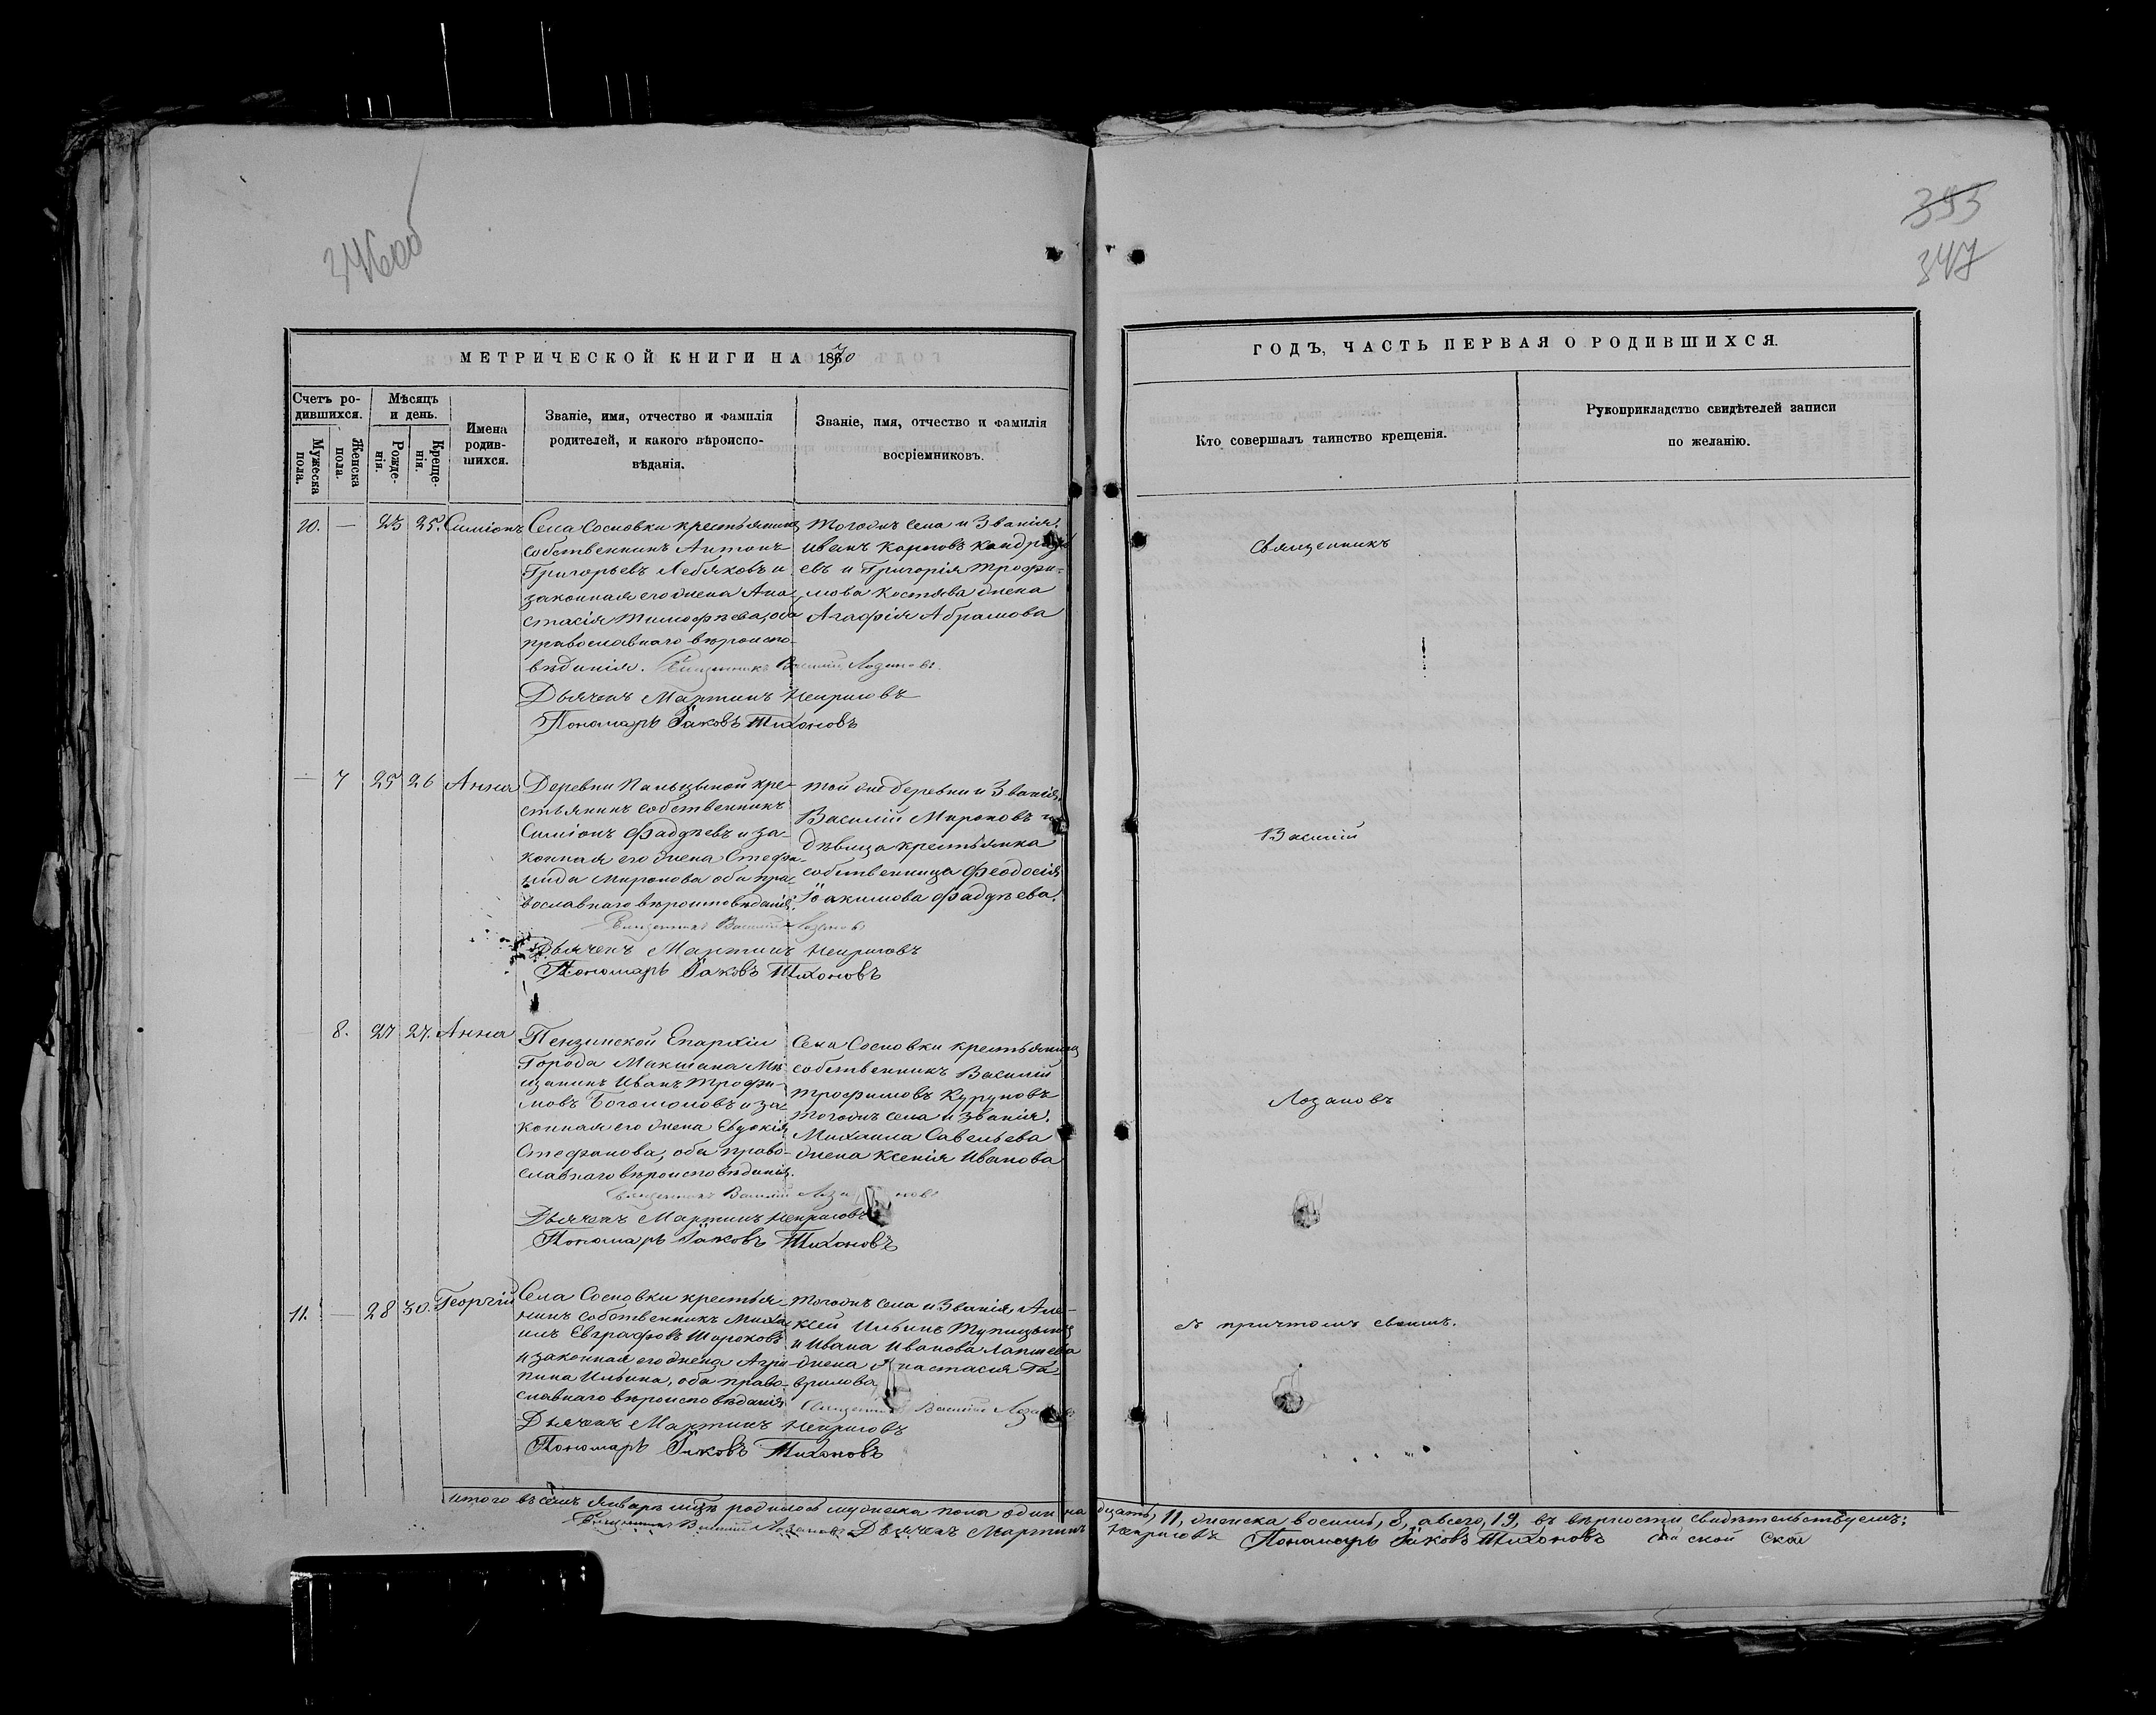 346об
393
347
МЕТРИЧЕСКОЙ КНИГИ НА 1870
ГОДЪ, ЧАСТЬ ПЕРВАЯ О РОДИВШИХСЯ.
Счетъ ро-
дившихся.
Мужеска
пола.
Женска
пола.
Мѣсяцъ
и день.
Рожде-
нія.
Креще-
нія.
Имена
родив-
шихся.
Званіе, имя, отчество и фамилія
родителей, и какого вѣроиспо-
вѣданія.
Званіе, имя, отчество и фамилія
воспріемниковъ.
Кто совершалъ таинство крещенія.
Рукоприкладство свидѣтелей записи
по желанію.
10. — 23 25. Симіонъ
Села Сосновки крестьянинъ
собственникъ Антонъ
Григорьевъ Лебяковъ и
законная его жена Ана-
стасія Тимофѣева, оба
православнаго вѣроиспо-
вѣданія. Священникъ Василій Лозановъ.
Дьячекъ Мартинъ
Пономарь Іаковъ Тихоновъ
Тогожъ села и званія,
Иванъ Карповъ Кандрать
евъ и Григорія Трофи-
мова Костява жена
Агафія Абрамова
— 7 25 26 Анна
Деревни кре-
стьянинъ собственникъ
Симіонъ Фаддѣевъ и за-
конная его жена Стефа-
нида Миронова оба пра-
вославнаго вѣроисповѣданія.
Священникъ Василій Лозановъ
Дьячекъ Мартинъ
Пономарь Іаковъ Тихоновъ
той же деревни и званія,
Василій Мироновъ и
дѣвица крестьянка
собственница Феодосія
Іоакимова Фаддѣева.
8. 27 27. Анна
Пензинской Епархіи
Города Макшана Мѣ
щанинъ Иванъ Трофи-
мовъ Богомоловъ и за-
конная его жена Евдокія
Стефанова, оба право-
славнаго вѣроисповѣданія.
Священникъ Василій Лозановъ
Дьячекъ Мартинъ
Пономарь Іаковъ Тихоновъ
Села Сосновки крестьянинъ
собственникъ Василій
Трофимовъ Куруновъ
тогожъ села и званія,
Михаила Савельева
жена Ксенія Иванова
11. — 28 30. Георгій
Села Сосновки крестья-
нинъ собственникъ Миха
илъ Евграфовъ Шороховъ
и законная его жена Агри
пина Ильина, оба право-
славнаго вѣроисповѣданія
Священникъ Василій Лозановъ
Дьячекъ Мартинъ
Пономарь Іаковъ Тихоновъ
Тогожъ села и званія, Але-
ксей Ильинъ Тупицынъ
и Ивана Иванова Лапшева
жена Анастасія Га-
врилова
Священникъ
Василій
Лозановъ
съ причтомъ своимъ.
Итого въ семъ Январѣ мцѣ родилось мужеска пола одиннадцать, 11, женска восемь, 8, а всего, 19, въ вѣрности свидѣтельствуемъ:
Священникъ Василій Лозановъ Дьячекъ Мартинъ Пономарь Іаковъ Тихоновъ